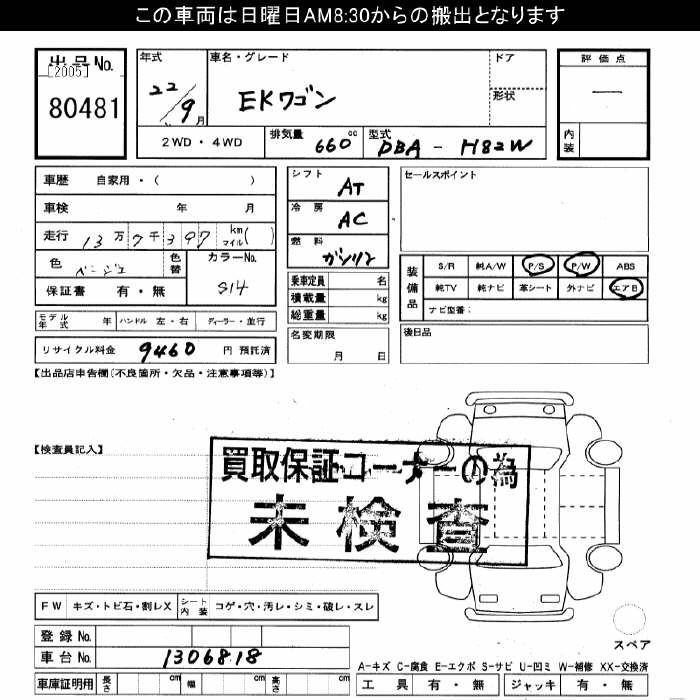 この車両は日曜日AM8:30からの搬出となります
出品No.
[2005]
80481
年式
22/9月
車名・グレード
EKワゴン
ドア
形状
評価点
―
内装
2WD・4WD
排気量 660cc
型式 DBA-H82W
車歴 自家用・( )
車検 年 月
走行 13万7千397 km マイル( )
色 ベージュ 色替
カラーNo. S14
保証書 有・無
シフト AT
冷房 AC
燃料 ガソリン
乗車定員 名
積載量 kg
総重量 kg
セールスポイント
装備品
S/R 純A/W P/S P/W ABS
純TV 純ナビ 革シート 外ナビ エアB
ナビ型番:
モデル年式 年 ハンドル 左・右 ディーラー・並行
名変期限
月 日
後日品
リサイクル料金 9460 円 預託済
【出品店申告欄(不良箇所・欠品・注意事項等)】
【検査員記入】
買取保証コーナーの為
未検査
FW キズ・トビ石・割レX シート内装 コゲ・穴・汚レ・シミ・破レ・スレ
登録No.
車台No. 1306818
スペア
A-キズ C-腐食 E-エクボ S-サビ U-凹ミ W-補修 XX-交換済
車庫証明用 長さ cm 幅 cm 高さ cm
工具 有・無 ジャッキ 有・無